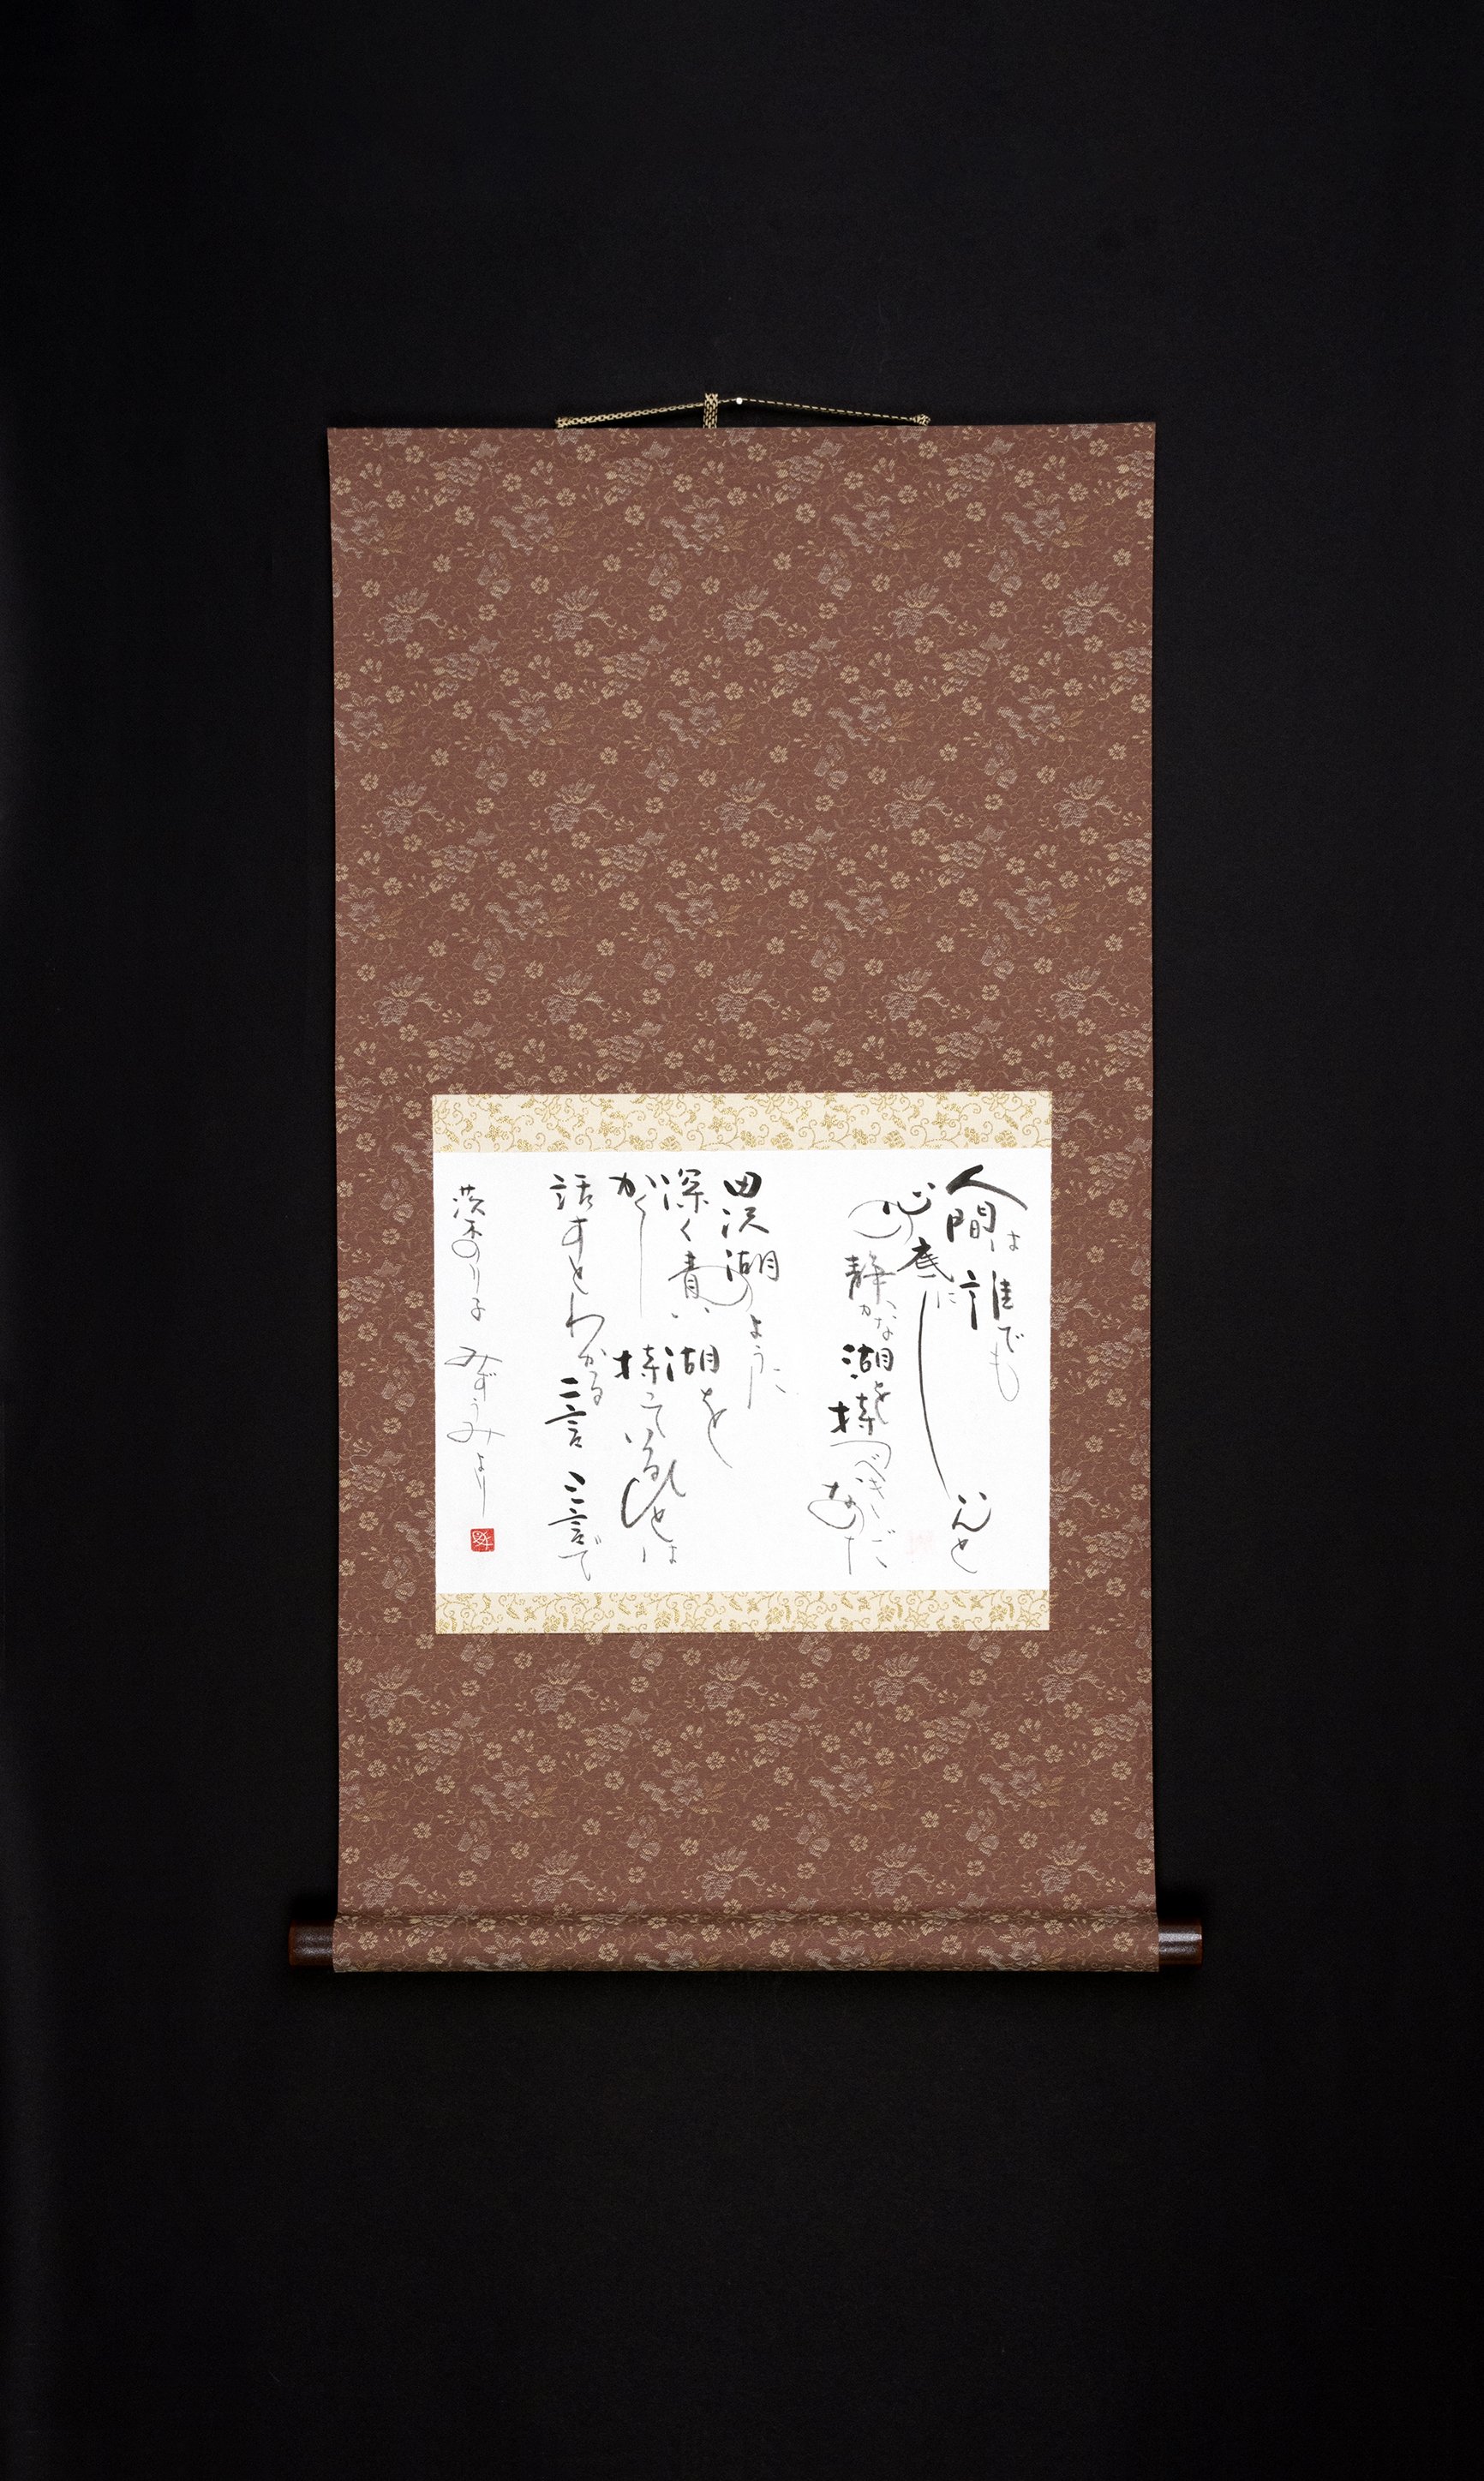 人間は誰でも
心の底に
しいんと
静かな湖を持つべきなのだ
田沢湖のように
深く青い湖を
かくし持っているひとは
話すとわかる 二言 三言で
茨木のり子 みずうみより